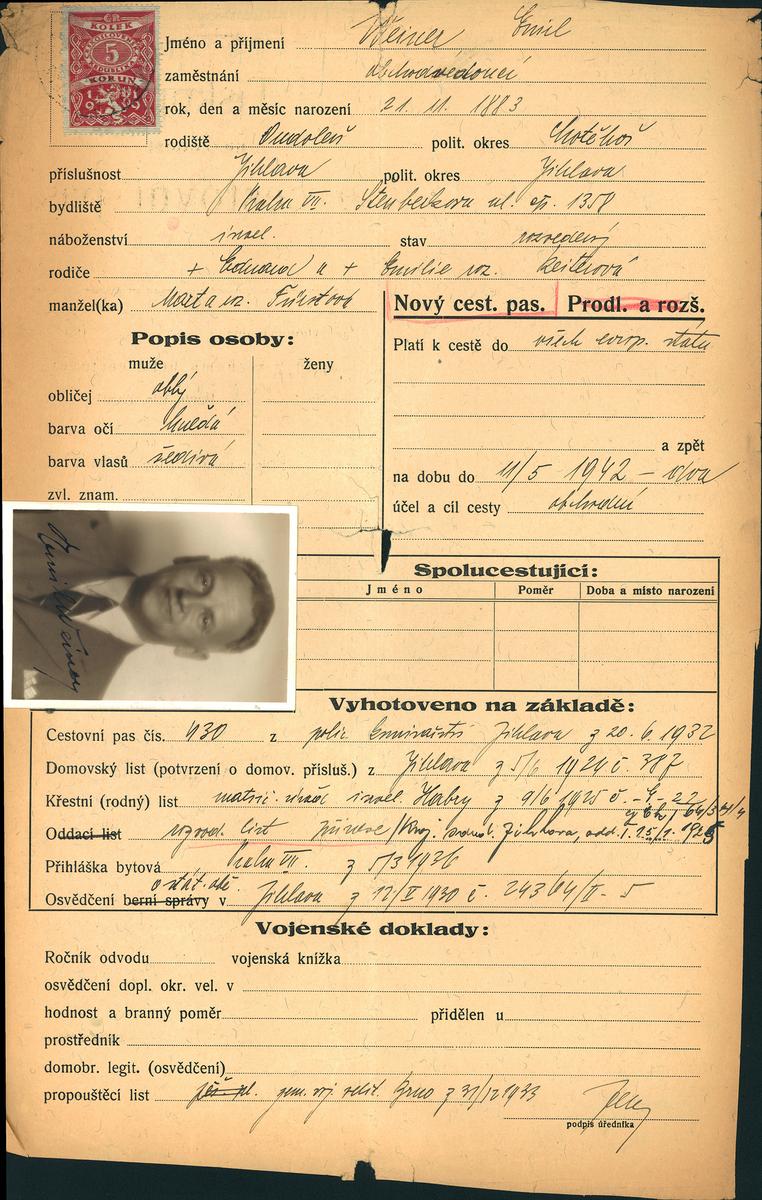 KOLEK
5
KORUN
Jméno a příjmení Weiner Emil
zaměstnání obchodvedoucí
rok, den a měsíc narození 21. 11. 1883
rodiště polit. okres
příslušnost Jihlava polit. okres Jihlava
bydliště Praha VII. ul. čp. 1351
náboženství israel. stav rozvedený
rodiče + Eduard a + Emilie roz.
manžel(ka) Marta roz. Fürstová
Nový cest. pas. Prodl. a rozš.
Popis osoby:
muže ženy
Platí k cestě do všech evrop. států
obličej oblý
barva očí hnědá
barva vlasů šedivá
zvl. znam.
a zpět
na dobu do 11/5 1942 – dva
účel a cíl cesty obchodní
Emil Weiner
Spolucestující:
Jméno Poměr Doba a místo narození
Vyhotoveno na základě:
Cestovní pas čís. 430 z polic. Jihlava z 20. 6. 1932
Domovský list (potvrzení o domov. přísluš.) z Jihlava z 5/6 1924 č. 387
Křestní (rodný) list matric. úřad israel. Habry z 9/6 1925 č.
Oddací list rozvod. list
Přihláška bytová Praha VII. z 5/3 1936
Osvědčení berní správy v o stát. obč. Jihlava z 12/II 1930 č. 24364/II - 5
Vojenské doklady:
Ročník odvodu vojenská knížka
osvědčení dopl. okr. vel. v
hodnost a branný poměr přidělen u
prostředník
domobr. legit. (osvědčení)
propouštěcí list zem. voj. velit. Brno z 31/12 1933
podpis úředníka